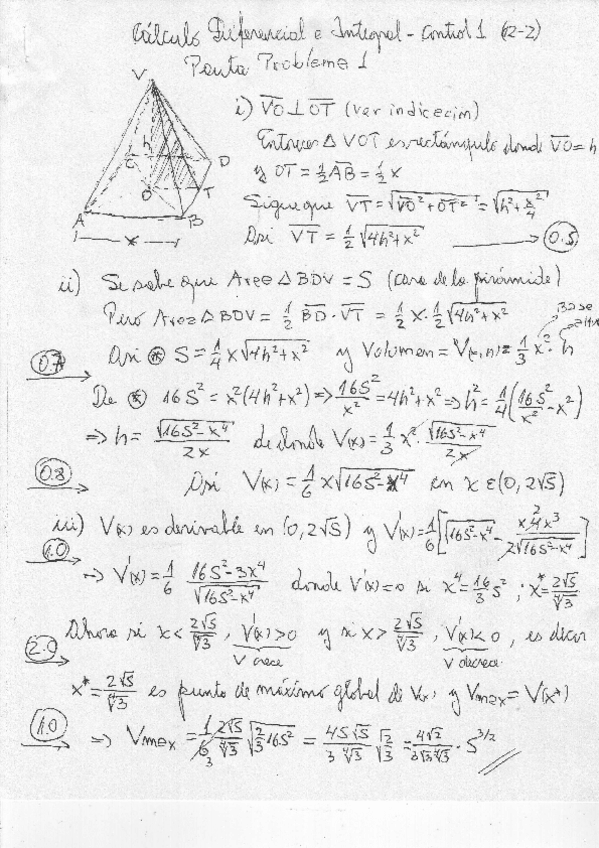 Cálculo Diferencial e Integral - Control 1 (2-2)
Pauta Problema 1
V
h
C
D
O
T
A
B
x
i) VO ⊥ OT (ver indicación)
Entonces Δ VOT es rectángulo donde VO = h
y OT = 1/2 AB = 1/2 x
Sigue que VT = √(VO² + OT²) = √(h² + x²/4)
Así VT = 1/2 √(4h²+x²) → 0.5
ii) Se sabe que Area Δ BDV = S (cara de la pirámide)
Pero Area Δ BDV = 1/2 BD · VT = 1/2 x · 1/2 √(4h²+x²)
Base
0.7 Así ⊛ S = 1/4 x √(4h²+x²) y Volumen = V(x,h) = 1/3 x² · h
De ⊛ 16S² = x²(4h²+x²) ⇒ 16S²/x² = 4h²+x² ⇒ h² = 1/4 (16S²/x² - x²)
⇒ h = √(16S²-x⁴)/2x de donde V(x) = 1/3 x² · √(16S²-x⁴)/2x
0.8 Así V(x) = 1/6 x √(16S²-x⁴) en x ∈ (0, 2√S)
iii) V(x) es derivable en (0, 2√S) y V'(x) = 1/6 [√(16S²-x⁴) - x 4x³/2√(16S²-x⁴)]
1.0 → V'(x) = 1/6 16S²-3x⁴/√(16S²-x⁴) donde V'(x)=0 si x⁴ = 16/3 S² ; x* = 2√S/⁴√3
Ahora si x < 2√S/⁴√3 , V'(x) > 0 y si x > 2√S/⁴√3 , V'(x) < 0 , es decir
2.0 V crece V decrece
x* = 2√S/⁴√3 es punto de máximo global de V(x) y Vmax = V(x*)
1.0 ⇒ Vmax = 1/6 2√S/⁴√3 √(2/3 16S²) = 4S√S/3 ⁴√3 √(2/3) = 4√2/3√3 ⁴√3 · S^3/2